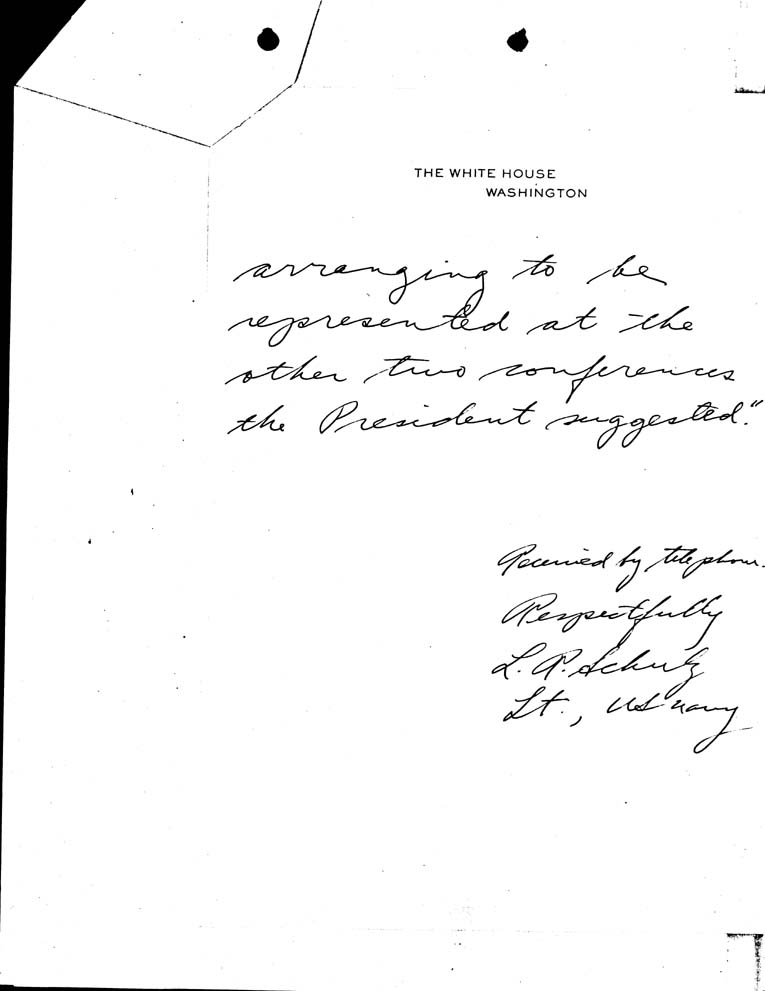 THE WHITE HOUSE
WASHINGTON
arranging to be
represented at the
other two conferences
the President suggested."
Received by telephone.
Respectfully
L. R. Schulz
Lt., US Navy